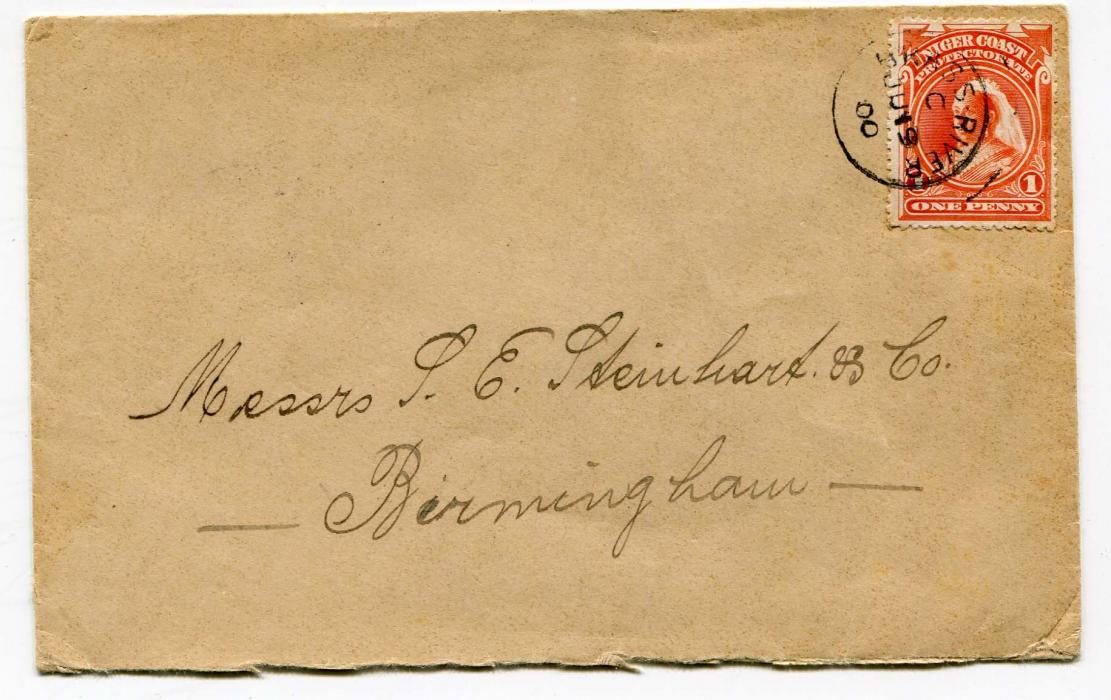 NIGER COAST
PROTECTORATE
1
ONE PENNY
RIVER
C
JU 19
00
Messrs S. E. Steinhart. & Co.
— Birmingham —